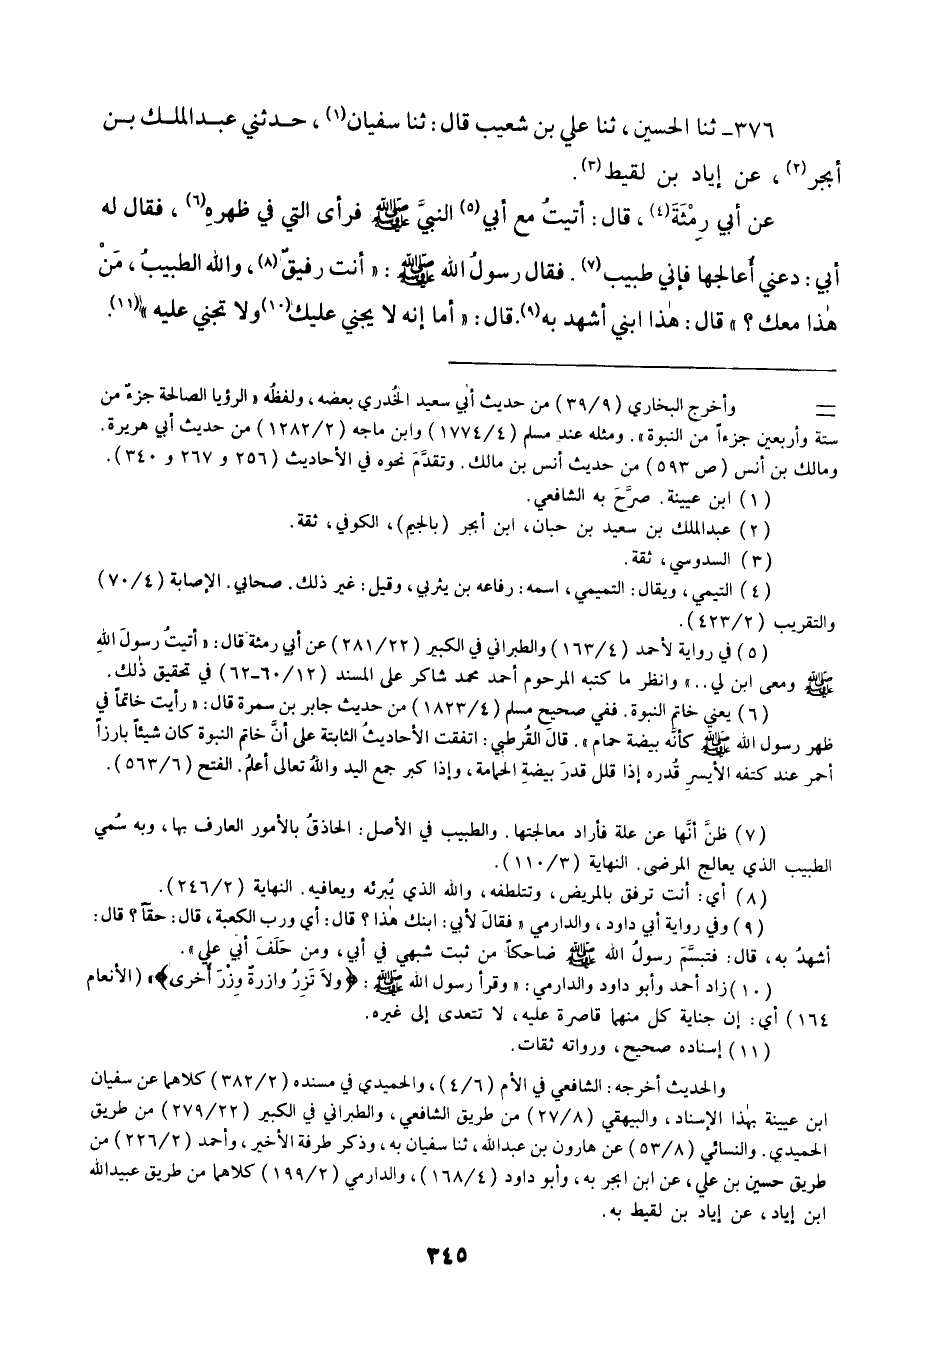 ٣٧٦ـ ثنا الحسين، ثنا علي بن شعيب قال: ثنا سفيان(١)، حـدثني عبـدالملـك بـن
أبجر(٢)، عن إياد بن لقيط(٣).
عن أبي رِمْثَةَ(٤)، قال: أتيتُ مع أبي(٥) النبيَّ ﷺ فرأى التي في ظهرهِ(٦)، فقال له
أبي: دعني أُعالجها فإني طبيب(٧). فقال رسولُ الله ﷺ: « أنت رفيقٌ(٨)، والله الطبيبُ، مَنْ
هٰذا معك؟ » قال: هٰذا ابني أشهد به(٩). قال: « أما إنه لا يجني عليك(١٠) ولا تجني عليه »(١١).
= وأخرج البخاري (٣٩/٩) من حديث أبي سعيد الخُدري بعضه، ولفظُه « الرؤيا الصالحة جزءٌ من
ستة وأربعين جزءاً من النبوة ». ومثله عند مسلم (١٧٧٤/٤) وابن ماجه (١٢٨٢/٢) من حديث أبي هريرة.
ومالك بن أنس (ص ٥٩٣) من حديث أنس بن مالك. وتقدَّمَ نحوه في الأحاديث (٢٥٦ و ٢٦٧ و ٣٤٠).
(١) ابن عيينة. صرَّحَ به الشافعي.
(٢) عبدالملك بن سعيد بن حبان، ابن أبجر (بالجيم)، الكوفي، ثقة.
(٣) السدوسي، ثقة.
(٤) التيمي، ويقال: التميمي، اسمه: رفاعه بن يثربي، وقيل: غير ذلك. صحابي. الإصابة (٧٠/٤)
والتقريب (٤٢٣/٢).
(٥) في رواية لأحمد (١٦٣/٤) والطبراني في الكبير (٢٨١/٢٢) عن أبي رمثة قال: « أتيتُ رسولَ اللهِ
ﷺ ومعى ابن لي.. » وانظر ما كتبه المرحوم أحمد محمد شاكر على المسند (٦٠/١٢ـ٦٢) في تحقيق ذٰلك.
(٦) يعني خاتم النبوة. ففي صحيح مسلم (١٨٢٣/٤) من حديث جابر بن سمرة قال: « رأيت خاتماً في
ظهر رسول الله ﷺ كأنَّه بيضة حمام ». قالَ القُرطبي: اتفقت الأحاديثُ الثابتة على أنَّ خاتم النبوة كان شيئاً بارزاً
أحمر عند كتفه الأيسرِ قُدره إذا قلل قدرَ بيضةِ الحمامة، وإذا كبر جمع اليد واللهُ تعالى أعلمُ. الفتح (٥٦٣/٦).
(٧) ظنَّ أنَّها عن علة فأراد معالجتها. والطبيب في الأصل: الحاذقُ بالأمور العارف بها، وبه سُمي
الطبيب الذي يعالج المرضى. النهاية (١١٠/٣).
(٨) أي: أنت ترفق بالمريض، وتتلطفه، والله الذي يُبرئه ويعافيه. النهاية (٢٤٦/٢).
(٩) وفي رواية أبي داود، والدارمي « فقالَ لأبي: ابنك هٰذا؟ قال: أي ورب الكعبة، قال: حقاً؟ قال:
أشهدُ به، قال: فتبسَّم رسولُ الله ﷺ ضاحكاً من ثبت شبهي في أبي، ومن حَلَفَ أبي علي ».
(١٠) زاد أحمد وأبو داود والدارمي: « وقرأ رسول الله ﷺ: ﴿ولاَ تَزِرُ وازرةٌ وِزْرَ أخرى﴾ » (الأنعام
١٦٤) أي: إن جناية كل منهما قاصرة عليه، لا تتعدى إلى غيره.
(١١) إسناده صحيح، ورواته ثقات.
والحديث أخرجه: الشافعي في الأم (٤/٦)، والحميدي في مسنده (٣٨٢/٢) كلاهما عن سفيان
ابن عيينة بهٰذا الإسناد، والبيهقي (٢٧/٨) من طريق الشافعي، والطبراني في الكبير (٢٧٩/٢٢) من طريق
الحميدي. والنسائي (٥٣/٨) عن هارون بن عبدالله، ثنا سفيان به، وذكر طرفة الأخير، وأحمد (٢٢٦/٢) من
طريق حسين بن علي، عن ابن ابجر به، وأبو داود (١٦٨/٤)، والدارمي (١٩٩/٢) كلاهما من طريق عبيدالله
ابن إياد، عن إياد بن لقيط به.
٣٤٥